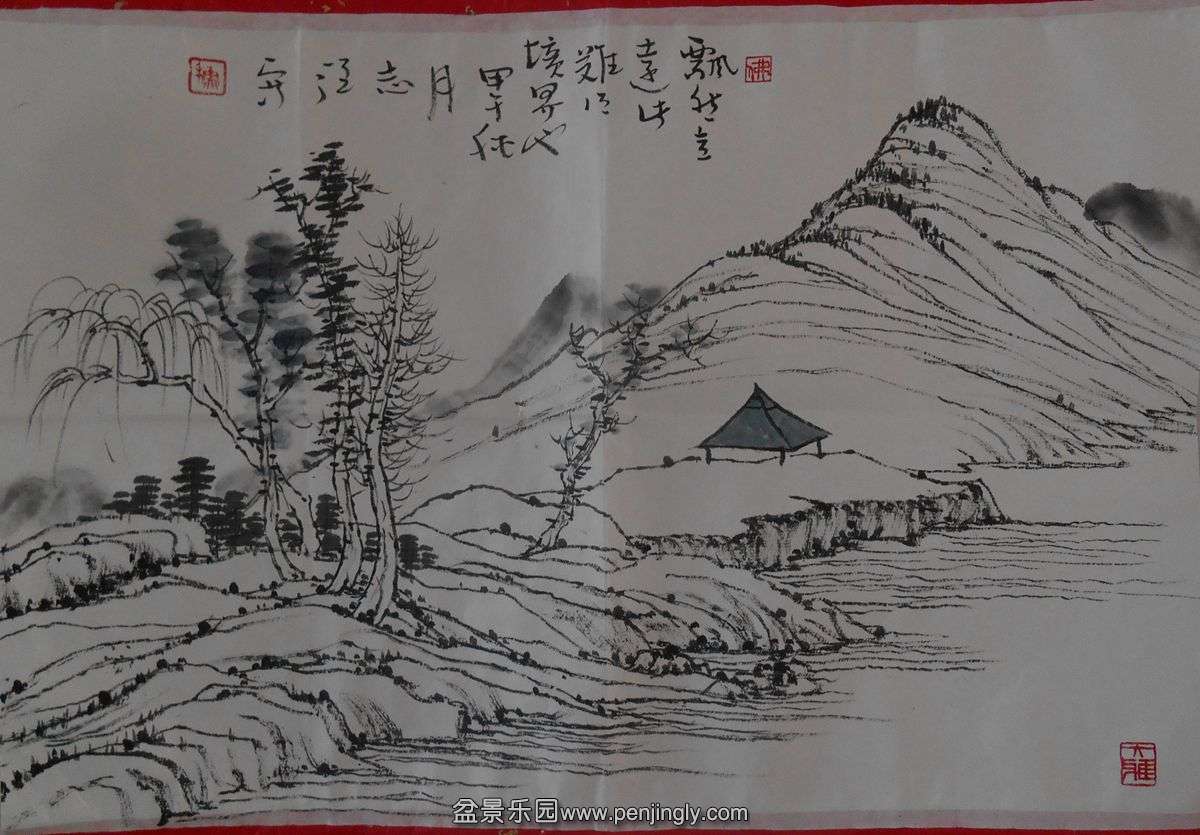 飘然意
远此
难得
境界也
甲午秋
月
志
江
写
大雅
盆景乐园www.penjingly.com